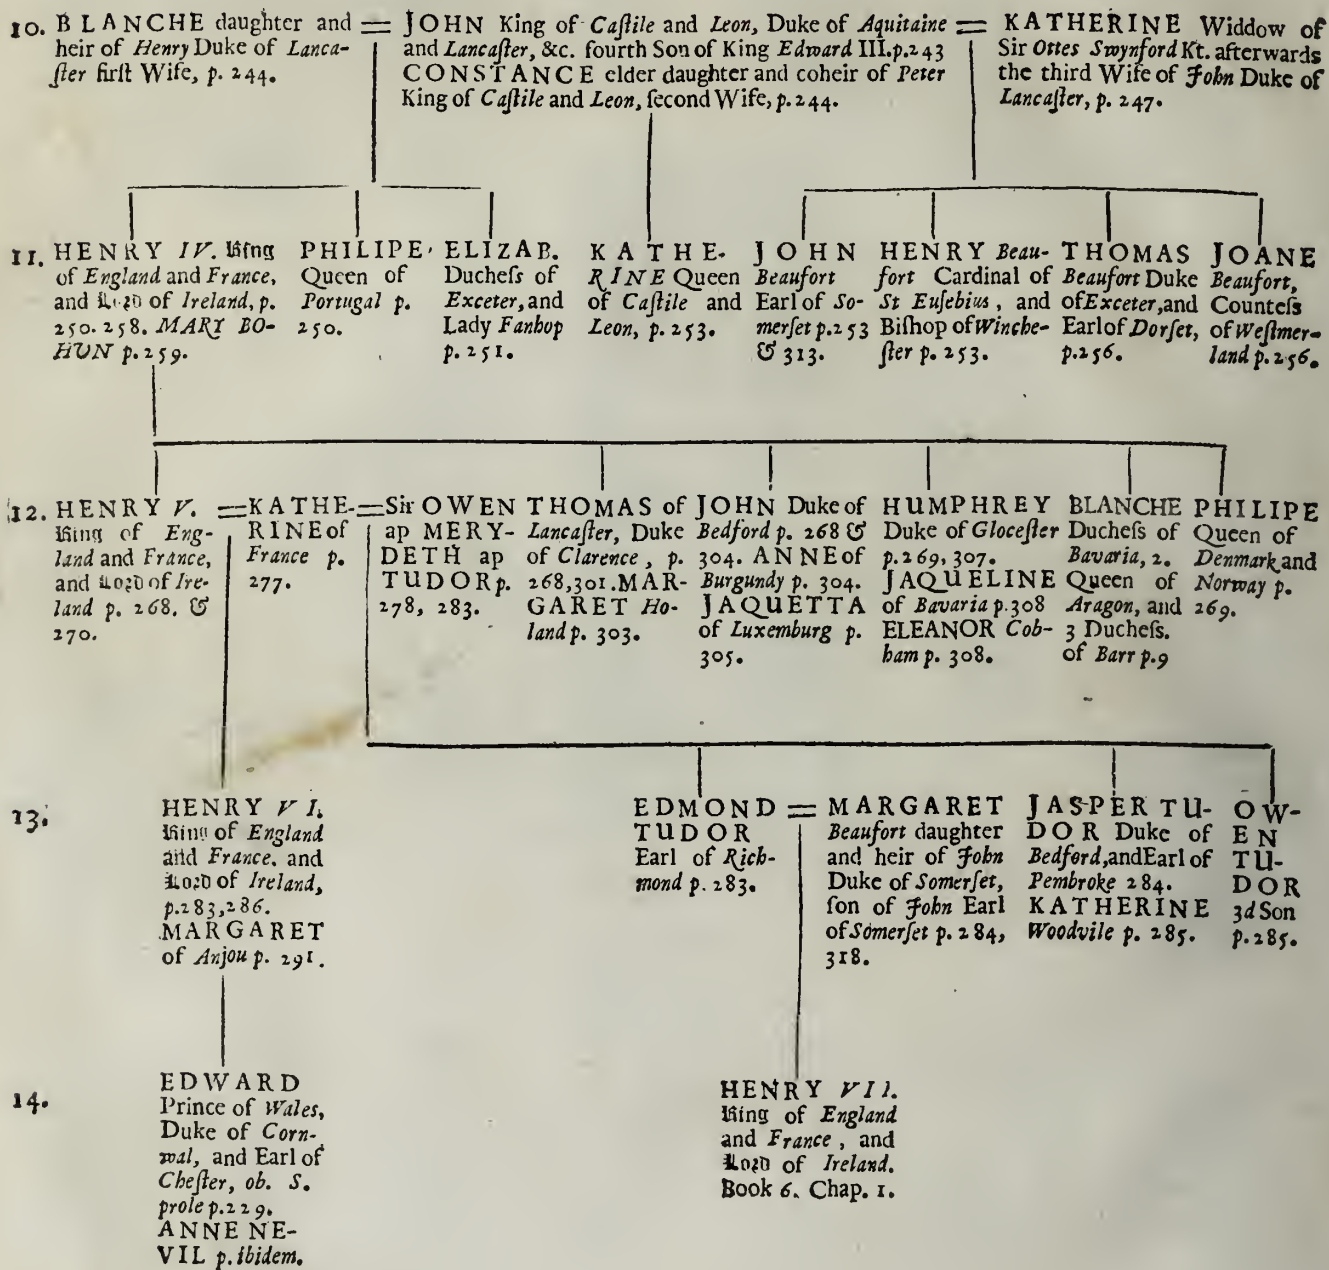 10. BLANCHE daughter and
heir of Henry Duke of Lanca-
ſter firſt Wife, p. 244.
= JOHN King of Caſtile and Leon, Duke of Aquitaine =
and Lancaſter, &c. fourth Son of King Edward III. p. 243
CONSTANCE elder daughter and coheir of Peter
King of Caſtile and Leon, ſecond Wife, p. 244.
KATHERINE Widdow of
Sir Ottes Swynford Kt. afterwards
the third Wife of John Duke of
Lancaſter, p. 247.
11. HENRY IV. King
of England and France,
and Lord of Ireland, p.
250. 258. MARY BO-
HUN p. 259.
PHILIPE,
Queen of
Portugal p.
250.
ELIZAB.
Ducheſs of
Exceter, and
Lady Fanhop
p. 251.
KATHE-
RINE Queen
of Caſtile and
Leon, p. 253.
JOHN
Beaufort
Earl of So-
merſet p. 253
& 313.
HENRY Beau-
fort Cardinal of
St Euſebius, and
Biſhop of Winche-
ſter p. 253.
THOMAS
Beaufort Duke
of Exceter, and
Earl of Dorſet,
p. 256.
JOANE
Beaufort,
Counteſs
of Weſtmer-
land p. 256.
12. HENRY V.
King of Eng-
land and France,
and Lord of Ire-
land p. 268. &
270.
= KATHE-
RINE of
France p.
277.
= Sir OWEN
ap MERY-
DETH ap
TUDOR p.
278, 283.
THOMAS of
Lancaſter, Duke
of Clarence, p.
268, 301. MAR-
GARET Ho-
land p. 303.
JOHN Duke of
Bedford p. 268 &
304. ANNE of
Burgundy p. 304.
JAQUETTA
of Luxemburg p.
305.
HUMPHREY
Duke of Gloceſter
p. 269, 307.
JAQUELINE
of Bavaria p. 308
ELEANOR Cob-
ham p. 308.
BLANCHE
Ducheſs of
Bavaria, 2.
Queen of
Aragon, and
3 Ducheſs.
of Barr p. 9
PHILIPE
Queen of
Denmark and
Norway p.
269.
13. HENRY VI.
King of England
and France, and
Lord of Ireland,
p. 283, 286.
MARGARET
of Anjou p. 291.
EDMOND =
TUDOR
Earl of Rich-
mond p. 283.
MARGARET
Beaufort daughter
and heir of John
Duke of Somerſet,
ſon of John Earl
of Somerſet p. 284,
318.
JASPER TU-
DOR Duke of
Bedford, and Earl of
Pembroke 284.
KATHERINE
Woodvile p. 285.
OW-
EN
TU-
DOR
3d Son
p. 285.
14. EDWARD
Prince of Wales,
Duke of Corn-
wal, and Earl of
Cheſter, ob. S.
prole p. 229.
ANNE NE-
VIL p. ibidem.
HENRY VII.
King of England
and France, and
Lord of Ireland.
Book 6. Chap. 1.